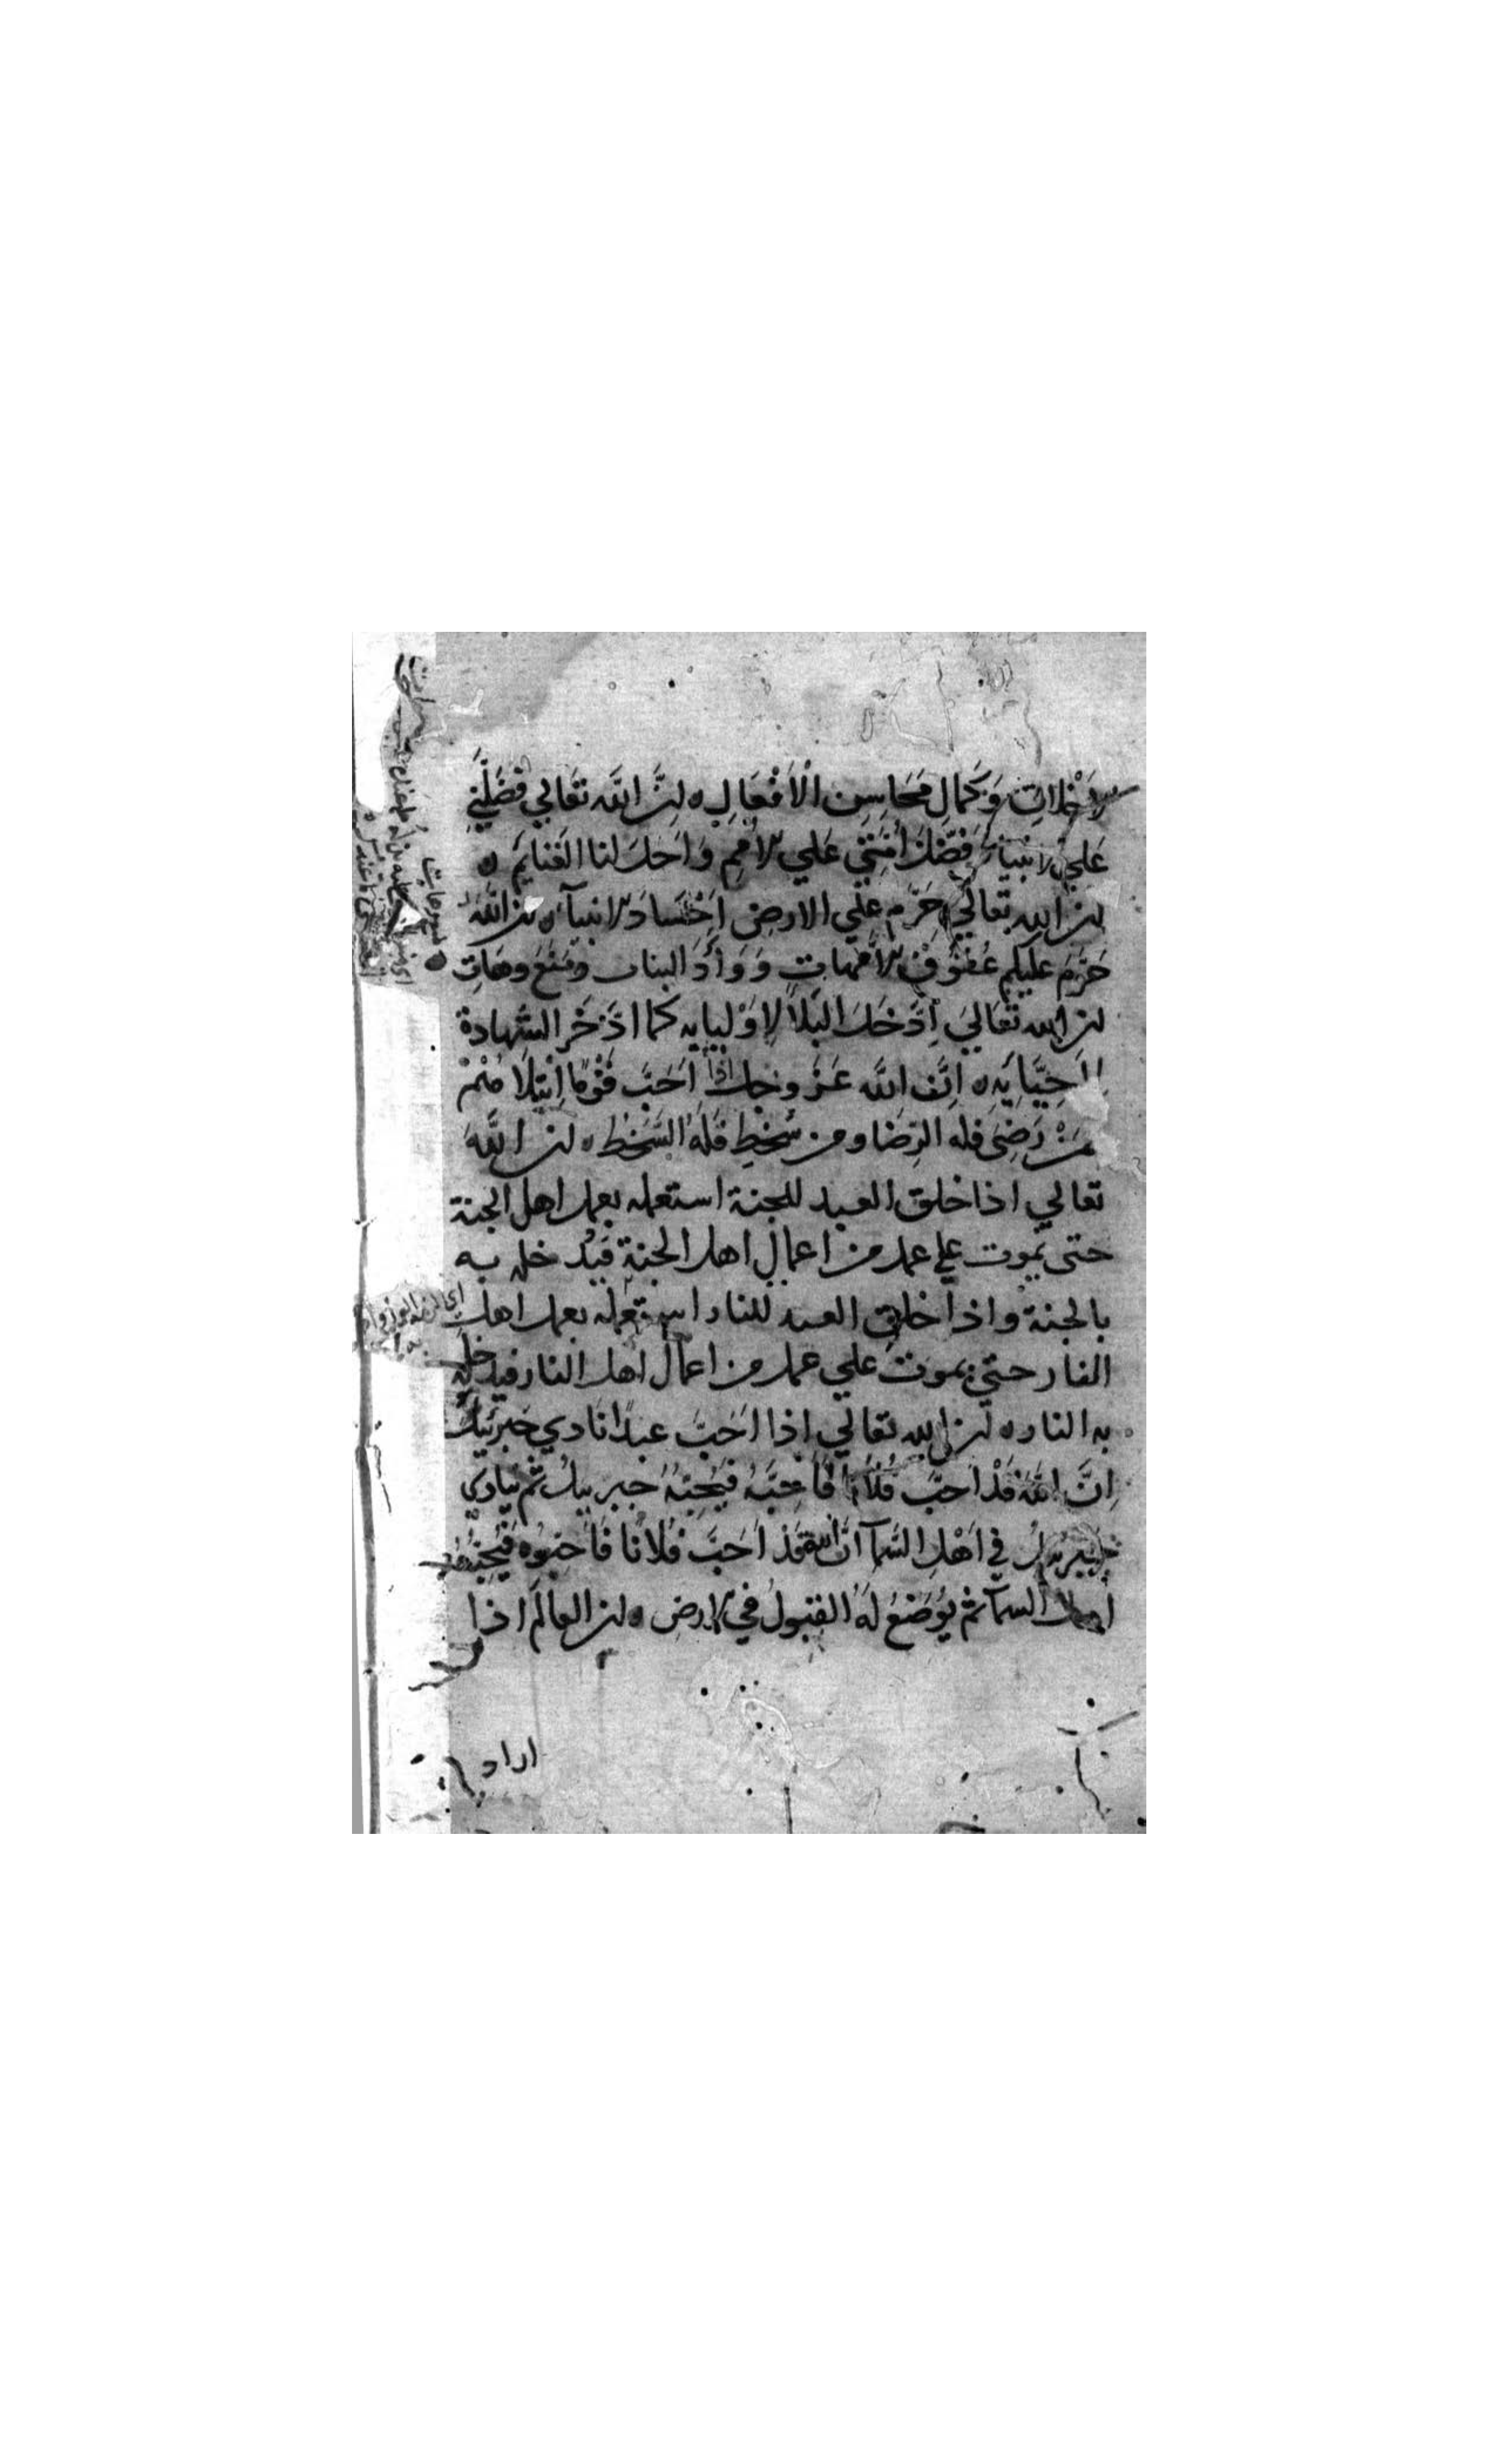 الاخلاق وَكَمالِ مَحَاسِنِ الْاَفْعَالِ ه اِنَّ اللَّه تعَالي فَضَّلَنِي
عَليَ الانبيَاء وَفَضَّلَ اُمَّتِي عَلي الاُمَمِ وَاَحَلَ لنا الغَنايَم ه
ان الله تعَالي حَرَّم علي الارضِ اَجْسَادَ الانبيآء ه ان اللَّهَ
حَرَّمَ عليكم عُقُوقَ الاُمَّهاتِ وَوَأدَ البنات ومَنعَ وهَاتِ
ان الله تعَاليَ اِدَّخَرَ البَلَاَ لِاَوْليايه كما ادَّخَر الشهادة
لِاَحِبَّايَهِ ه اِنَّ اللَّه عَزَّ وجل اذا اَحَبَّ قَوْمًا اِبْتَلَا هُمْ
فمَنْ رَضِيَ فله الرِّضَا ومن سَخِطِ فَلَهُ السَّخَطُ ه ان اللَّهَ
تعالي اذا خلق العبد للجنة استعمله بعمل اهل الجنة
حتي يموت علي عمل من اعمال اهل الجنةِ فَيُدخله به
بالجنة واذا خلق العبد للنار استعمله بعمل اهل
النار حتي يموت علي عمل من اعمال اهل النار فيدخله
به النار ه ان الله تعالي اذا اَحَبَّ عبدًا نادي جَبرئيلَ
اِنَّ اللَّهَ قَدْ اَحبَّ فُلَانًا فَاَحِبَّهُ فَيُحِبُّهُ جبرييلُ ثم يُنادي
جبرييلُ في اَهْلِ السَّمآ انَّ اللهَ قد اَحَبَّ فُلانًا فَاَحِبُّوه فَيُحِبُّهُ
اهل السمآ ثم يُوضَعُ لَهُ القبولُ في الارضِ ه ان العالَم اذا
اراد